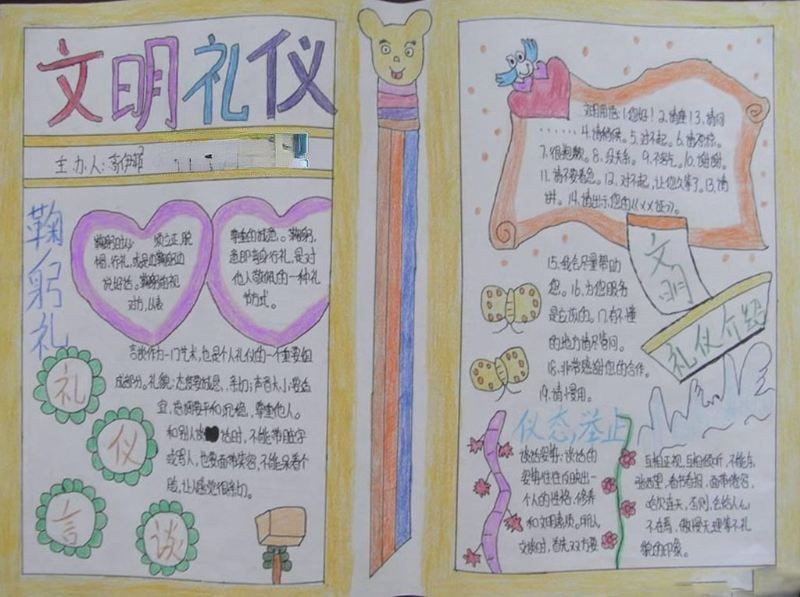 文明礼仪
主办人:
鞠躬礼
鞠躬时必须立正、脱
帽,行礼,或是边鞠躬边
说好话。鞠躬前视
对方,以表
尊重的诚意。鞠躬,
意即弯身行礼,是对
他人敬佩的一种礼
节方式。
言谈作为一门艺术,也是个人礼仪的一个重要组
成部分。礼貌:态度要诚恳、亲切;声音大小要适
宜,语调要平和沉稳,尊重他人。
和别人说话时,不能带脏字
或骂人,也要面带笑容,不能呆着个
脸,让人感觉很务力。
礼
仪
言
谈
文明用语:1.您好!2.请坐!3.请问
……4.请稍候。5.对不起。6.请原谅。
7.很抱歉。8.没关系。9.不客气。10.谢谢。
11.请不要着急。12.对不起,让您久等了。13.请
讲。14.请出示您的《××证》。
15.我会尽量帮助
您。16.为您服务
是应该的。17.有不懂
的地方请尽管问。
18.非常感谢您的合作。
19.请慢用。
文明
礼仪介绍
仪态举止
谈话姿势:谈话的
姿势往往反映出一
个人的性格、修养
和文明素质。所以
交谈时,首先双方要
互相正视、互相倾听,不能东
张西望、看书看报、面带倦容、
哈欠连天。否则,会给人心
不在焉、傲慢无理等不礼
貌的印象。